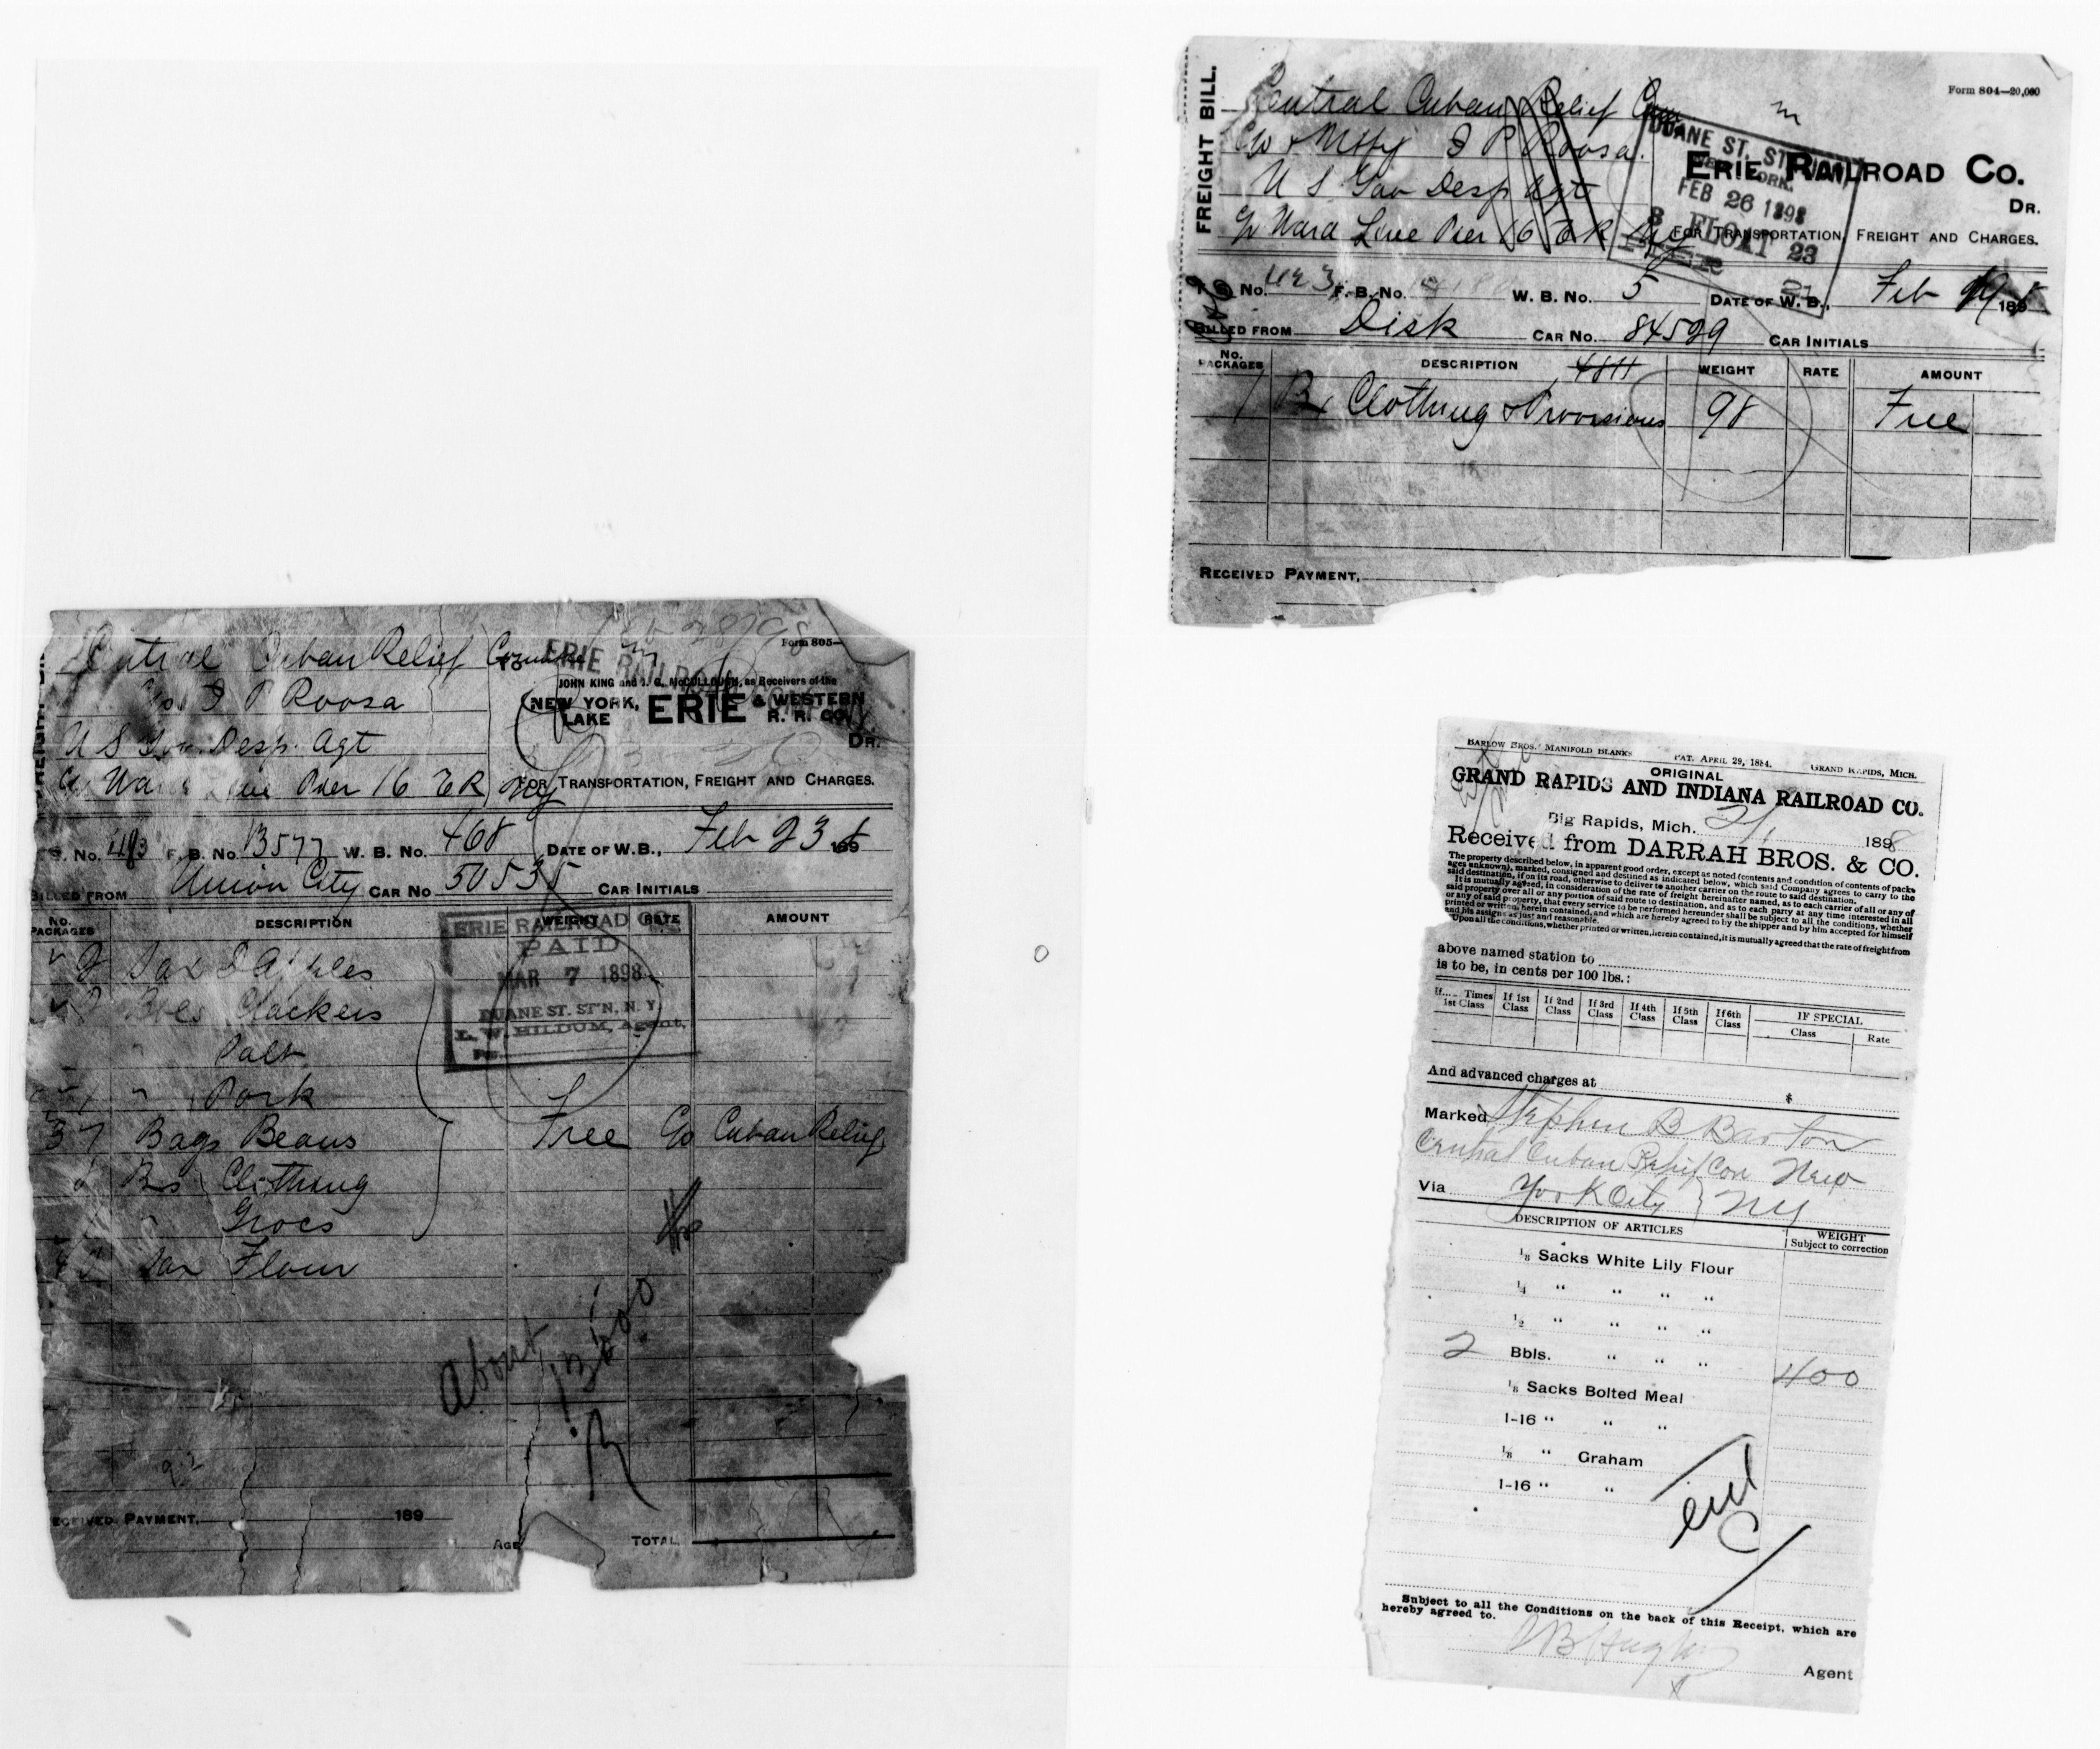 Central Cuban Relief
I P Roosa
U S Gov. Desp. Agt
Ward Line Pier 16 E R NY
Form 805—
ERIE RAILROAD
JOHN KING and J. G. McCULLOUGH, as Receivers of the
NEW YORK, LAKE ERIE & WESTERN R. R. CO.,
DR.
FOR TRANSPORTATION, FREIGHT AND CHARGES.
No. F. B. No. 13577 W. B. No. 468 DATE OF W.B., Feb 23 1898
BILLED FROM Union City CAR NO 50535 CAR INITIALS
NO. PACKAGES DESCRIPTION WEIGHT RATE AMOUNT
ERIE RAILROAD CO.
PAID
MAR 7 1898
DUANE ST. ST'N, N. Y.
L. W. HILDUM, Agent,
Per
2 Sax D Apples
Bbls Crackers
" Salt
1 " Pork
37 Bags Beans Free Cuban Relief
Bxs Clothing
" Grocs
Sax Flour
About
R
RECEIVED PAYMENT, 189
AGE
TOTAL
FREIGHT BILL.
Central Cuban Relief Com
Form 804—20,000
I P Roosa.
U S Gov Desp Agt
Ward Line Pier 16 E R NY
DUANE ST. STATION
NEW YORK.
FEB 26 1898
FLOAT 23
PIER 21
ERIE RAILROAD CO.
DR.
FOR TRANSPORTATION, FREIGHT AND CHARGES.
No. 423 F. B. No. W. B. No. 5 DATE OF W. B., Feb 189
BILLED FROM Disk CAR NO. 84529 CAR INITIALS
NO. PACKAGES DESCRIPTION WEIGHT RATE AMOUNT
1 Bx Clothing & Provisions 98 Free
RECEIVED PAYMENT,
BARLOW BROS.' MANIFOLD BLANKS PAT. APRIL 29, 1884. GRAND RAPIDS, MICH.
ORIGINAL
GRAND RAPIDS AND INDIANA RAILROAD CO.
Big Rapids, Mich. 21, 1898
Received from DARRAH BROS. & CO.
The property described below, in apparent good order, except as noted (contents and condition of contents of packages unknown), marked, consigned and destined as indicated below, which said Company agrees to carry to the
said destination, if on its road, otherwise to deliver to another carrier on the route to said destination.
It is mutually agreed, in consideration of the rate of freight hereinafter named, as to each carrier of all or any of
said property over all or any portion of said route to destination, and as to each party at any time interested in all
or any of said property, that every service to be performed hereunder shall be subject to all the conditions, whether
printed or written, herein contained, and which are hereby agreed to by the shipper and by him accepted for himself
and his assigns as just and reasonable.
Upon all the conditions, whether printed or written, herein contained, it is mutually agreed that the rate of freight from
above named station to
is to be, in cents per 100 lbs.:
If.... Times 1st Class If 1st Class If 2nd Class If 3rd Class If 4th Class If 5th Class If 6th Class IF SPECIAL Class Rate
And advanced charges at $
Marked Stephen B Barton
Central Cuban Relief Com New
Via York City NY
DESCRIPTION OF ARTICLES WEIGHT Subject to correction
⅛ Sacks White Lily Flour
¼ " " " "
½ " " " "
2 Bbls. " " " 400
⅛ Sacks Bolted Meal
1-16 " " "
⅛ " Graham
1-16 " "
Subject to all the Conditions on the back of this Receipt, which are
hereby agreed to.
Agent